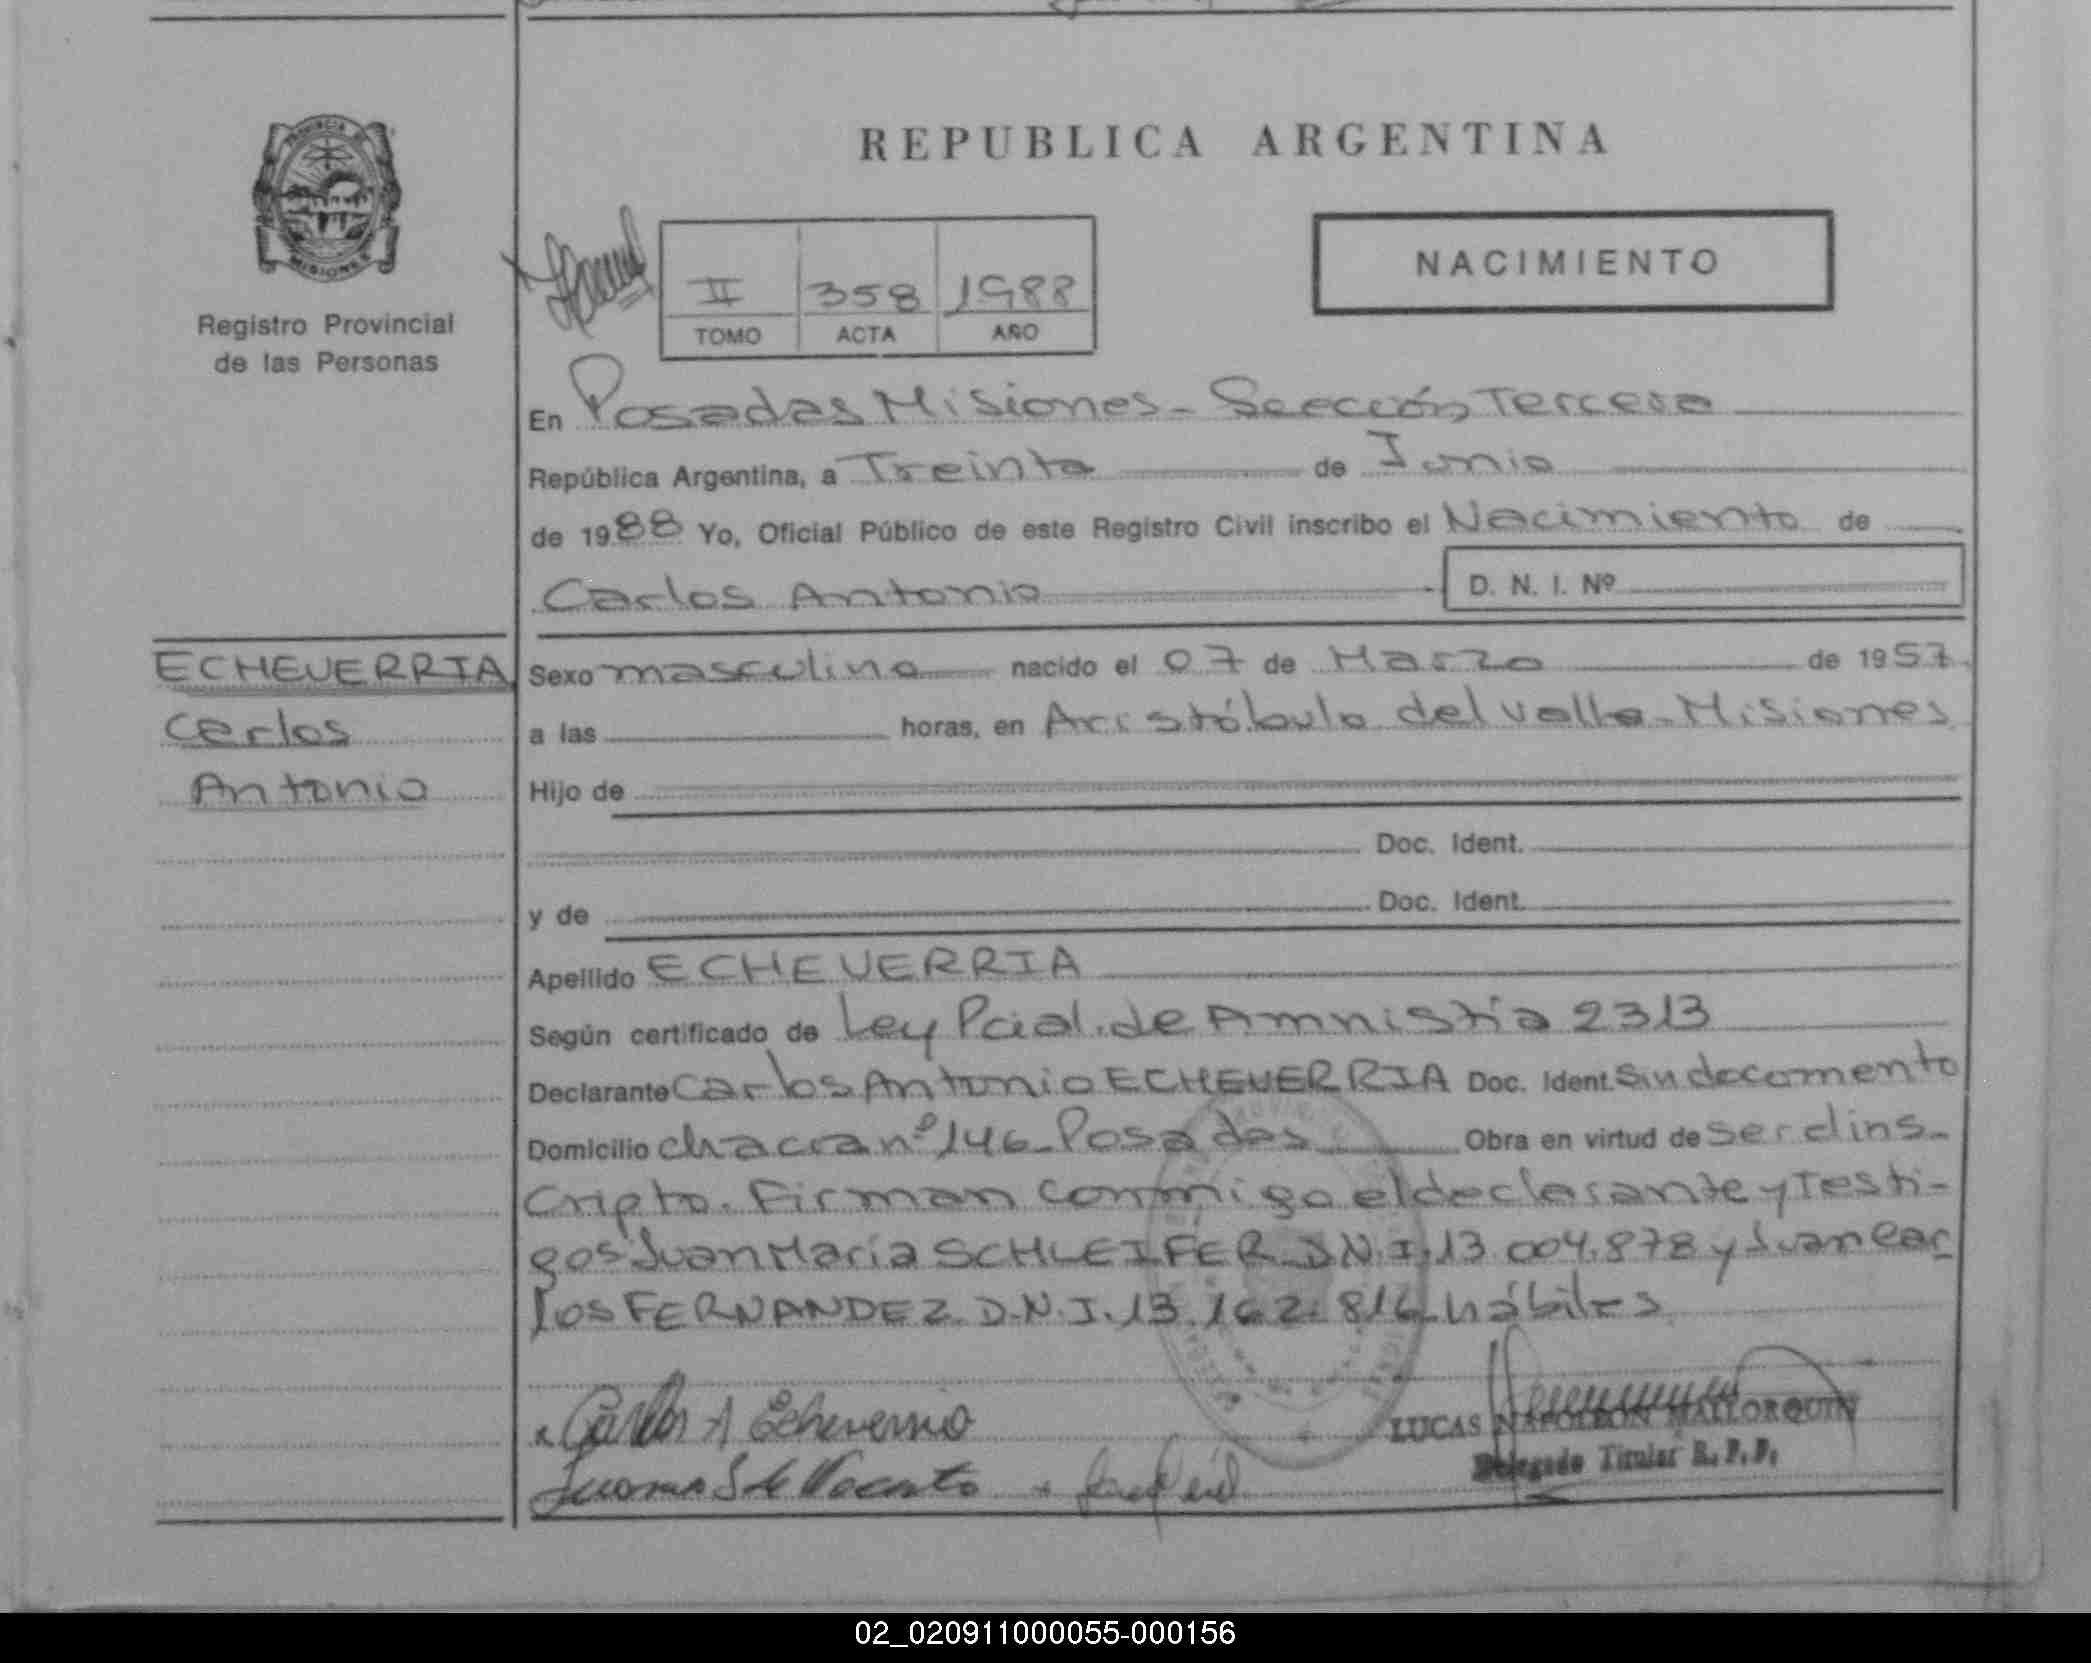 PROVINCIA DE
MISIONES
Registro Provincial
de las Personas
REPUBLICA ARGENTINA
NACIMIENTO
II 358 1988
TOMO ACTA AÑO
En Posadas Misiones - Sección Tercera
República Argentina, a Treinta de Junio
de 1988 Yo, Oficial Público de este Registro Civil inscribo el Nacimiento de
Carlos Antonio D. N. I. Nº
ECHEVERRIA
Carlos
Antonio
Sexo masculino nacido el 07 de Marzo de 1957
a las horas, en Aristóbulo del Valle - Misiones
Hijo de
Doc. Ident.
y de Doc. Ident.
Apellido ECHEVERRIA
Según certificado de Ley Pcial. de Amnistía 2313
Declarante Carlos Antonio ECHEVERRIA Doc. Ident. Sin documento
Domicilio chacra nº 146 - Posadas Obra en virtud de ser el ins-
cripto. Firman conmigo el declarante y Testi-
gos Juan María SCHLEIFER D.N.I. 13.004.878 y Juan Car
los FERNANDEZ D.N.I. 13.162.816 hábiles
Carlos A Echeverria
LUCAS NAPOLEON MALLORQUIN
Delegado Titular R. P. P.
02_020911000055-000156